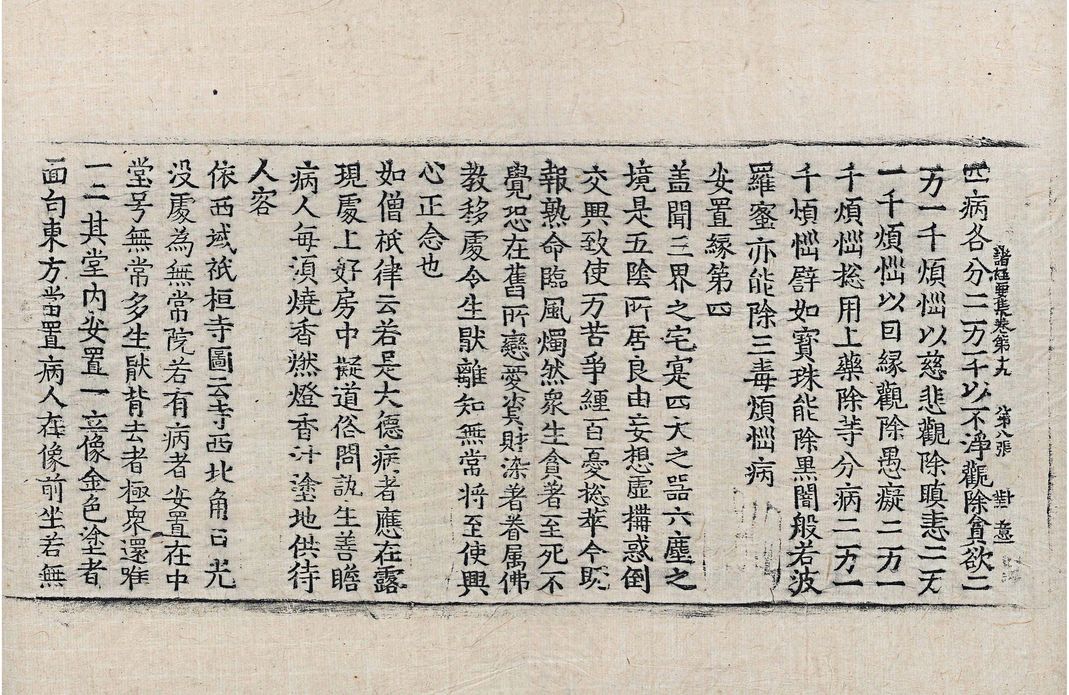 諸經要集卷第十九 第八張
四病各分二万千以不淨觀除貪欲二
万一千煩惱以慈悲觀除瞋恚二万
一千煩惱以因縁觀除愚癡二万一
千煩惱捴用上藥除等分病二万一
千煩惱譬如寶珠能除黑闇般若波
羅蜜亦能除三毒煩惱病
安置縁第四
盖聞三界之宅寔四大之器六塵之
境是五陰所居良由妄想虚搆惑倒
交興致使万苦爭纏百憂捴萃今既
報熟命臨風燭然衆生貪著至死不
覺恐在舊所戀愛資財染著眷属佛
教移處令生猒離知無常將至使興
心正念也
如僧祇律云若是大德病者應在露
現處上好房中擬道俗問訊生善瞻
病人每湏燒香燃燈香汁塗地供待
人容
依西域祇桓寺圖云寺西北角日光
没處為無常院若有病者安置在中
堂号無常多生猒背去者極衆還唯
一二其堂内安置一立像金色塗者
面向東方當置病人在像前坐若無